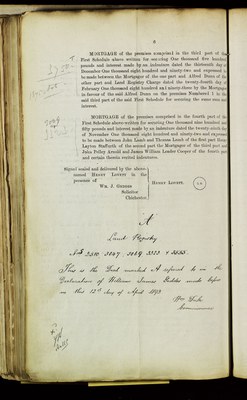 8
MORTGAGE of the premises comprised in the third part of the
First Schedule above written for securing One thousand five hundred
pounds and interest made by an indenture dated the thirtieth day of
December One thousand eight hundred and ninety-two and expressed to
be made between the Mortgagee of the one part and Alfred Dunn of the
other part and Land Registry Charge dated the twenty-fourth day of
February One thousand eight hundred and ninety-three by the Mortgagee
in favour of the said Alfred Dunn on the premises Numbered 1 in the
said third part of the said First Schedule for securing the same sum and
interest.
MORTGAGE of the premises comprised in the fourth part of the
First Schedule above written for securing One thousand nine hundred and
fifty pounds and interest made by an indenture dated the twenty-ninth day
of November One thousand eight hundred and ninety-two and expressed
to be made between John Leach and Thomas Leach of the first part
Layton of the second part the Mortgagee of the third part and
John Polley Arnold and James William Louder Cooper of the fourth part
and certain therein recited indentures.
Signed sealed and delivered by the above-
named HENRY LOVETT in the
presence of
Wm. J. Graves
Solicitor
Chichester.
HENRY LOVETT.
L.S.
A
Land Registry
3518 3323
This is the Deed marked A referred to in the
Declaration of William James made before
me this 12th day of April 1893